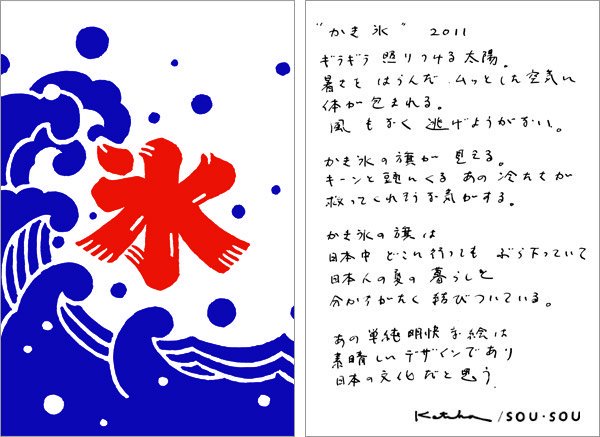 氷
"かき氷" 2011
ギラギラ 照りつける太陽。
暑さを はらんだ ムッとした空気に
体が包まれる。
風 もなく 逃げようがない。
かき氷の旗が 見える。
キーンと頭にくる あの冷たさが
救ってくれそうな気がする。
かき氷の旗は
日本中 どこに行っても ぶら下っていて
日本人の夏の暮らしと
分かちがたく 結びついている。
あの単純明快な絵は
素晴しいデザインであり
日本の文化だと思う。
/SOU・SOU